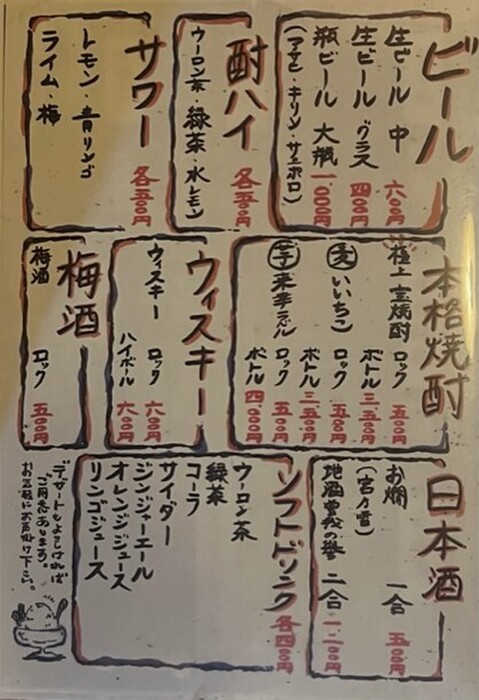 ビール
生ビール 中 六〇〇円
生ビール グラス 四〇〇円
瓶ビール 大瓶 一、〇〇〇円
(アサヒ・キリン・サッポロ)
酎ハイ 各五〇〇円
ウーロン茶・緑茶・水レモン
サワー 各五〇〇円
レモン・青リンゴ
ライム・梅
本格焼酎
極上 宝焼酎 ロック 五〇〇円
ボトル 三、五〇〇円
麦 いいちこ ロック 五〇〇円
ボトル 三、五〇〇円
芋 ロック 五〇〇円
ボトル 四、〇〇〇円
ウィスキー
ウィスキー ロック 六〇〇円
ハイボール 六〇〇円
梅酒
梅酒 ロック 五〇〇円
日本酒
お燗 一合 五〇〇円
(宮乃雪)
地酒 の誉 二合 一、一〇〇円
ソフトドリンク 各四〇〇円
ウーロン茶
緑茶
コーラ
サイダー
ジンジャーエール
オレンジジュース
リンゴジュース
デザートもよろければ
ご用意あります。
お気軽にお声掛け下さい。